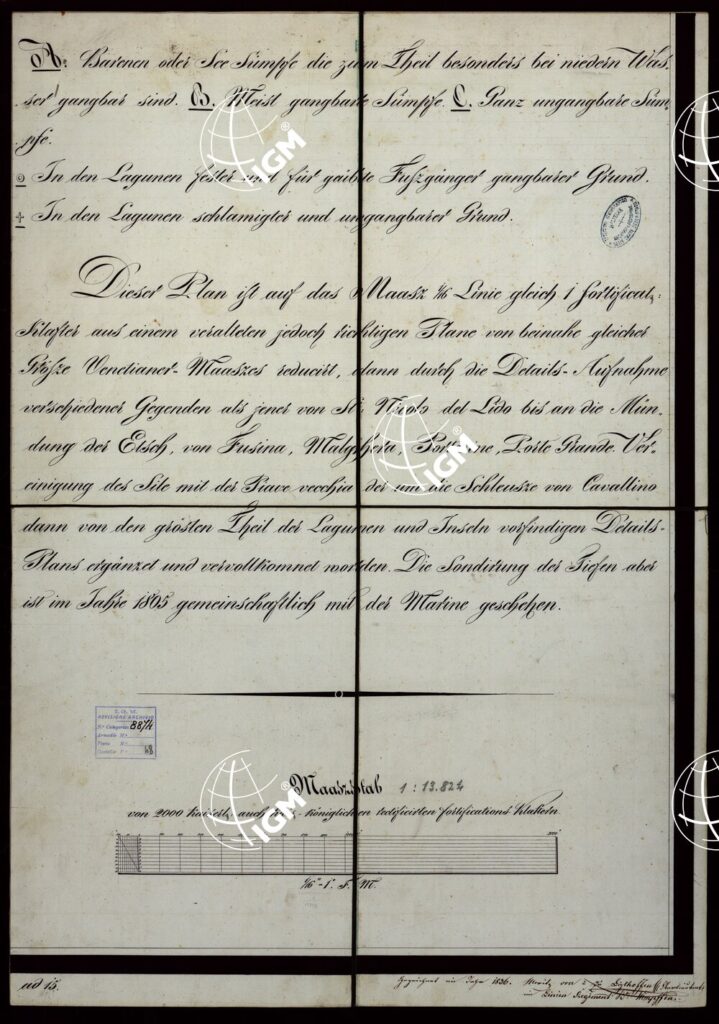 A. Barenen oder See Sümpfe die zum Theil besonders bei niedern Was-
ser gangbar sind. B. Meist gangbare Sümpfe. C. Ganz ungangbare Süm-
pfe.
In den Lagunen fester und für geübte Fußgänger gangbarer Grund.
In den Lagunen schlamigter und ungangbarer Grund.
Dieser Plan ist auf das Maasz 1/16 Linie gleich 1 fortificat:
Klafter aus einem veralteten jedoch richtigen Plane von beinahe gleicher
Größze Venetianer-Maaszes reducirt, dann durch die Details-Aufnahme
verschiedener Gegenden als jener von St. Nicolo del Lido bis an die Mün-
dung der Etsch, von Fusina, Malghera, Porte Grande. Ver-
einigung des Sile mit der Piave vecchia der um die Schleusze von Cavallino
dann von den grösten Theil der Lagunen und Inseln vorfindigen Détails-
Plans ergänzet und vervollkomnet worden. Die Sondirung der Tiefen aber
ist im Jahre 1805 gemeinschaftlich mit der Marine geschehen.
I. G. M.
8874
68
Maaszstab 1:13.824
von 2000 Kaiserl. auch königlichen rectificirten fortifications Klaftern
2000
1/16"-1° F. M.
ad 15.
Gezeichnet im Jahr 1826. Moritz von
IGM
IGM
IGM